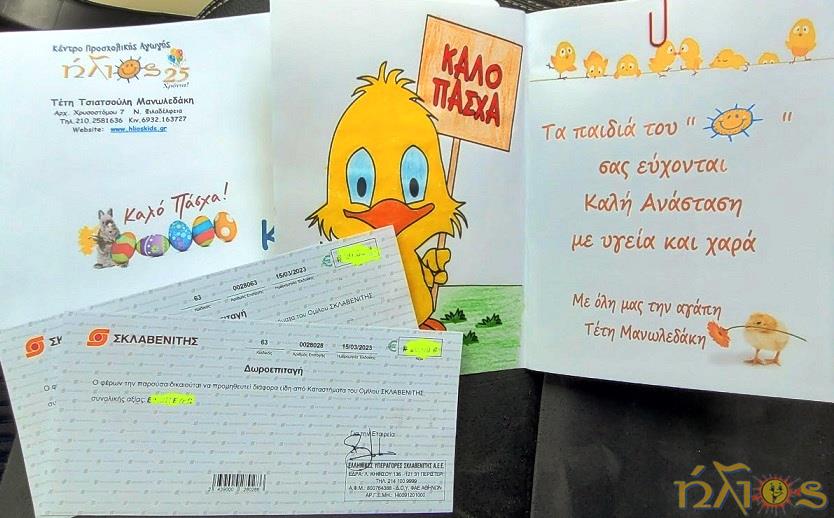 Κέντρο Προσχολικής Αγωγής
ήλιος 25
Χρόνια!
Τέτη Τσιατσούλη Μανωλεδάκη
Αρχ. Χρυσοστόμου 7 Ν. Φιλαδέλφεια
Τηλ.210.2581636 Κιν.6932.163727
Website: www.hlioskids.gr
Καλό Πάσχα!
Κ
ΚΑΛΟ
ΠΑΣΧΑ
Τα παιδιά του " "
σας εύχονται
Καλή Ανάσταση
με υγεία και χαρά
Με όλη μας την αγάπη
Τέτη Μανωλεδάκη
63 0028063 15/03/2023 €
Κωδικός Αριθμός Επιταγής Ημερομηνία Έκδοσης
επιταγή
ματα του Ομίλου ΣΚΛΑΒΕΝΙΤΗΣ
ΣΚΛ
Ο φέρ
συν
ΣΚΛΑΒΕΝΙΤΗΣ
63 0028028 15/03/2023 €
Κωδικός Αριθμός Επιταγής Ημερομηνία Έκδοσης
Δωροεπιταγή
Ο φέρων την παρούσα δικαιούται να προμηθευτεί διάφορα είδη από Καταστήματα του Ομίλου ΣΚΛΑΒΕΝΙΤΗΣ
συνολικής αξίας:
Για την Εταιρεία
ΕΛΛΗΝΙΚΕΣ ΥΠΕΡΑΓΟΡΕΣ ΣΚΛΑΒΕΝΙΤΗΣ Α.Ε.Ε.
ΕΔΡΑ: Λ. ΚΗΦΙΣΟΥ 136 - 121 31 ΠΕΡΙΣΤΕΡΙ
ΤΗΛ. 214 100 9999
Α.Φ.Μ.: 800764388 - Δ.Ο.Υ. ΦΑΕ ΑΘΗΝΩΝ
ΑΡ.Γ.Ε.ΜΗ.: 140091201000
ήλιος